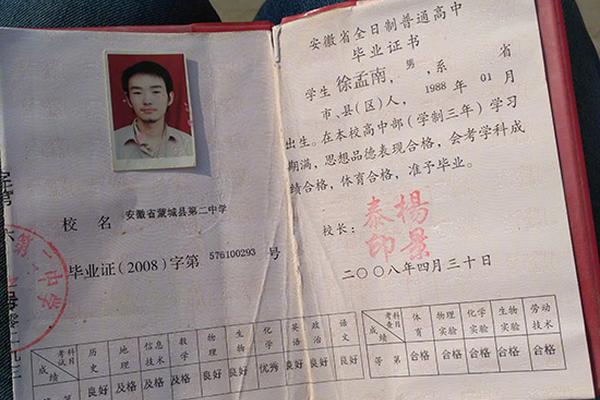 校名 安徽省蒙城县第二中学
毕业证(2008)字第 576100293 号
第二中学
考试科目 历史 地理 信息技术 数学 物理 生物 化学 英语 政治 语文
成绩 良好 及格 及格 及格 良好 良好 优秀 良好 良好 良好
安徽省全日制普通高中
毕业证书
学生 徐孟南，男，系 省
市、县(区)人，1988 年 01 月
出生。在本校高中部(学制三年)学习
期满，思想品德表现合格，会考学科成
绩合格，体育合格，准予毕业。
校长：楊景泰印
二〇〇八年四月三十日
考查科目 体育 物理实验 化学实验 生物实验 劳动技术
等第 合格 合格 合格 合格 合格